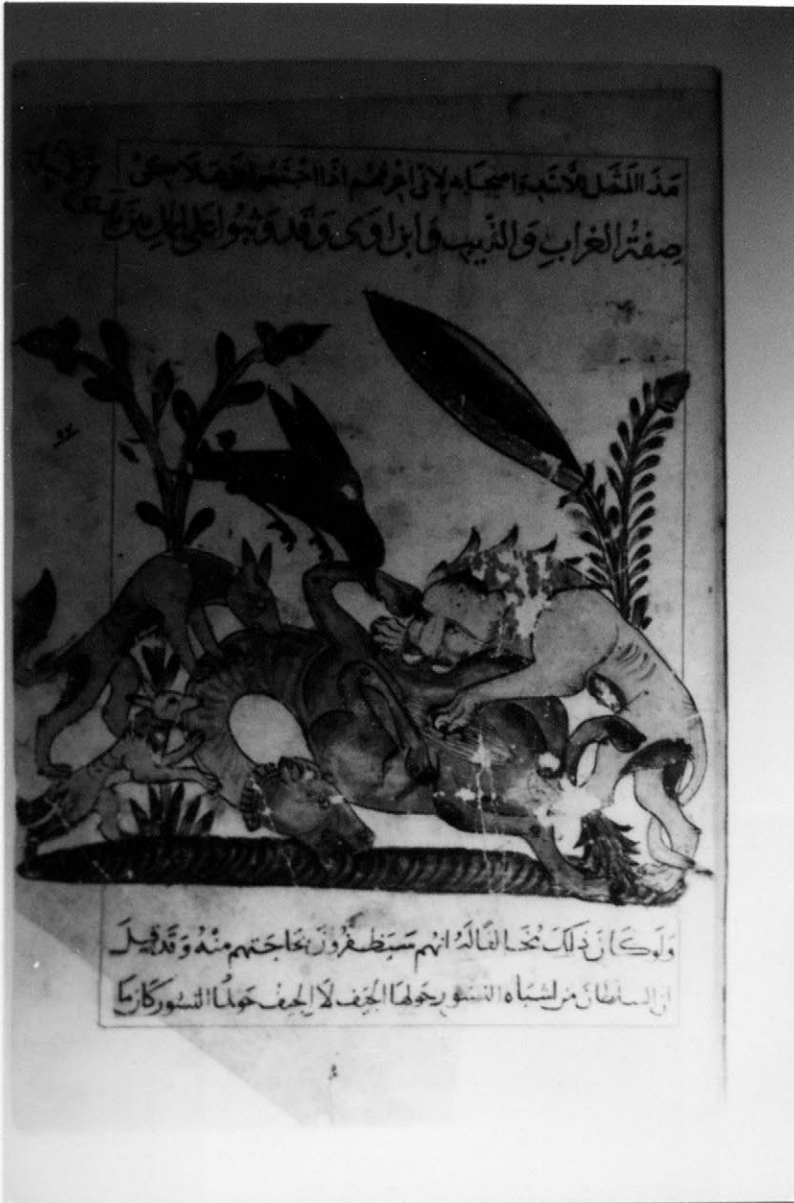 هَذَا المَثَل لأنّ اصحابه لانى اخر اذا اجتمعوا على هَلاكى
صِفَةُ الغرابِ وَالذيبِ وَابن اوَى وَقَد وَثبُوا عَلى الجمل
وَلَو كَانَ ذَلكَ مُخَالفًا لَهُ انهم سَيَظفرُونَ بحَاجتهم منهُ وَقد قيلَ
ان السلطان من اشبَاه النسُور حَولهَا الجيَف لَا الجيف حَولهَا النسُور كَان مَا